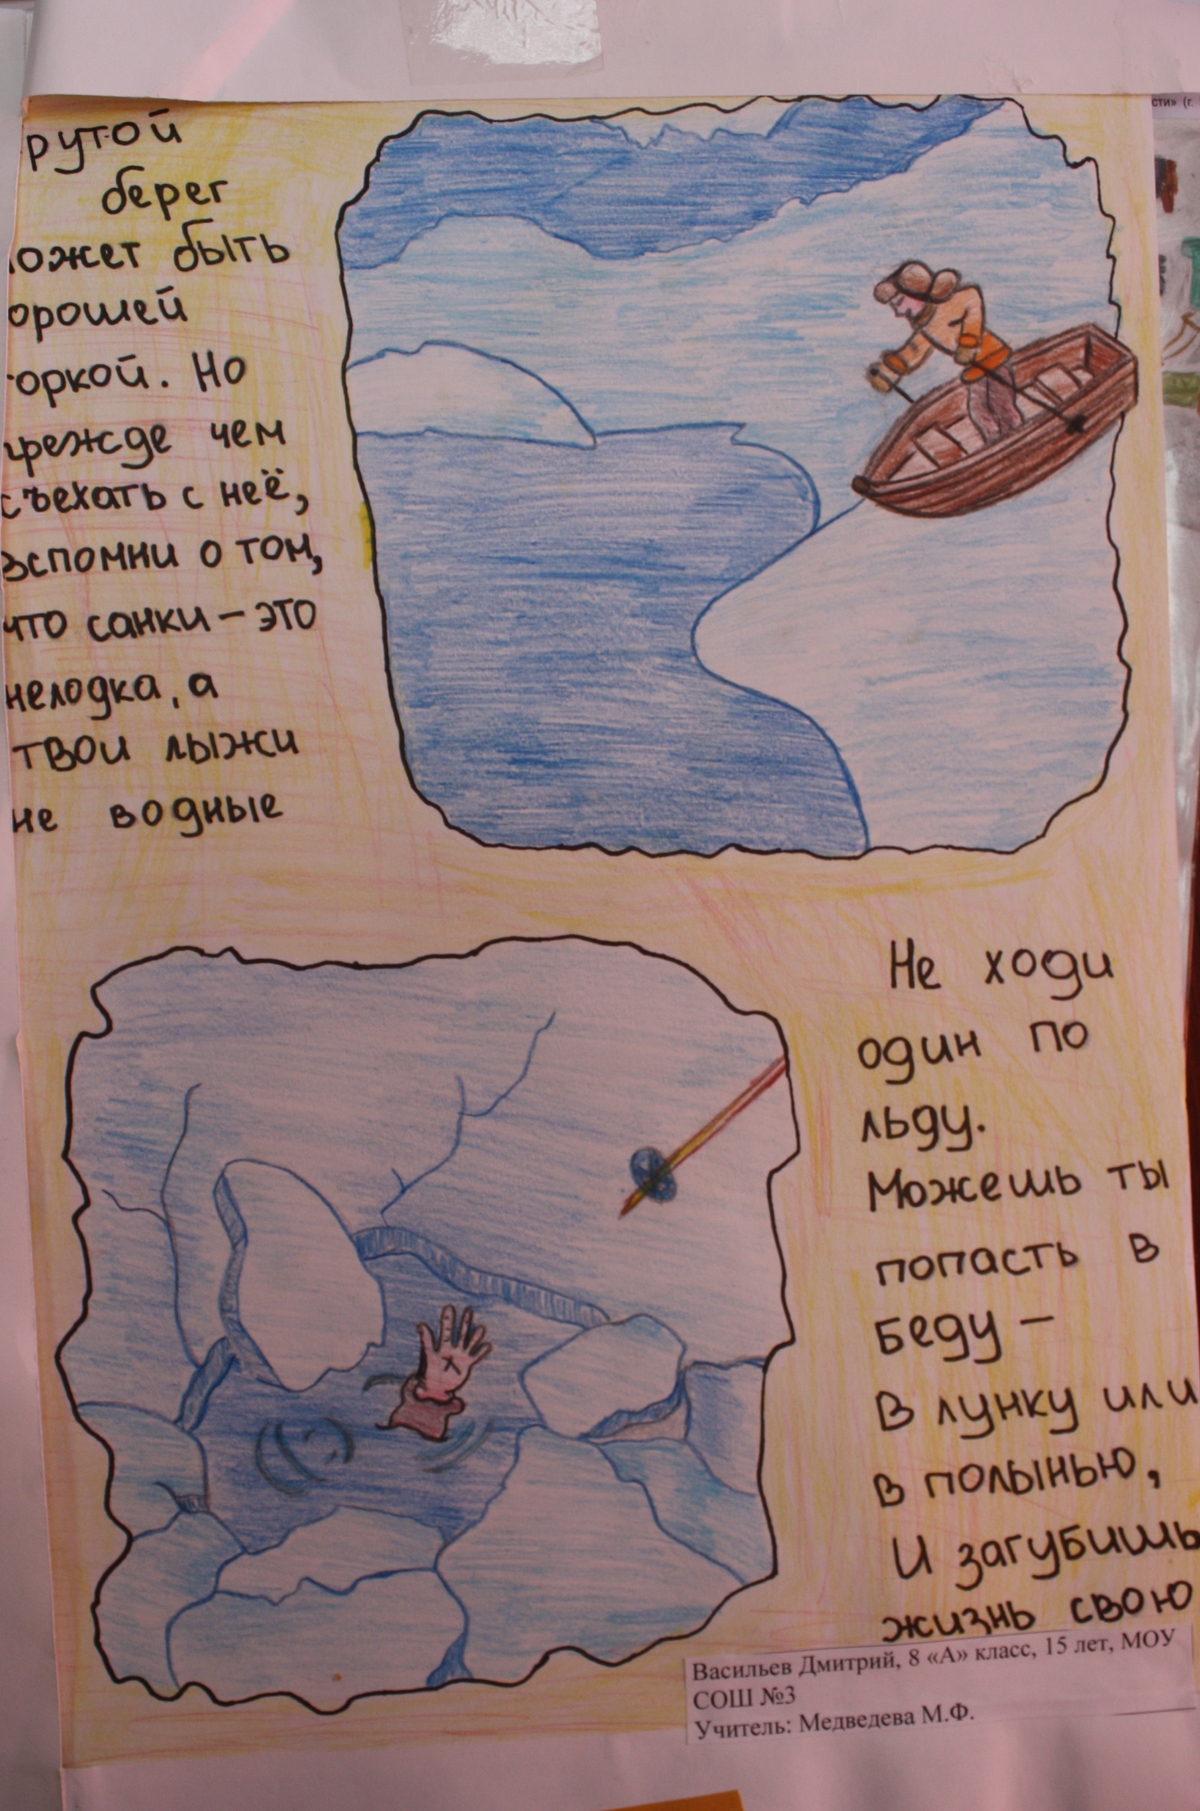 рутой
берег
ожет быть
орошей
оркой. Но
прежде чем
съехать с неё,
вспомни о том,
что санки – это
нелодка, а
твои лыжи
не водные
Не ходи
один по
льду.
Можешь ты
попасть в
беду –
В лунку или
в полынью,
И загубишь
жизнь свою
Васильев Дмитрий, 8 «А» класс, 15 лет, МОУ
СОШ №3
Учитель: Медведева М.Ф.
сти» (г.